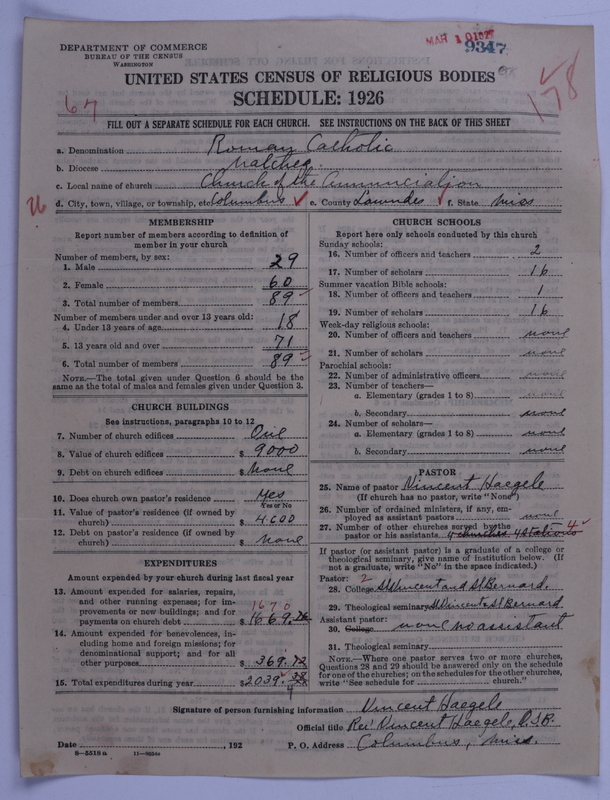 DEPARTMENT OF COMMERCE
BUREAU OF THE CENSUS
WASHINGTON
MAR 10 1927
9347
UNITED STATES CENSUS OF RELIGIOUS BODIES
SCHEDULE: 1926
67
178
FILL OUT A SEPARATE SCHEDULE FOR EACH CHURCH. SEE INSTRUCTIONS ON THE BACK OF THIS SHEET
a. Denomination Roman Catholic
b. Diocese Natchez.
c. Local name of church Church of the Annunciation
d. City, town, village, or township, etc Columbus e. County Lowndes f. State Miss
MEMBERSHIP
Report number of members according to definition of
member in your church
Number of members, by sex:
1. Male 29
2. Female 60
3. Total number of members 89
Number of members under and over 13 years old:
4. Under 13 years of age 18
5. 13 years old and over 71
6. Total number of members 89
NOTE.—The total given under Question 6 should be the
same as the total of males and females given under Question 3.
CHURCH BUILDINGS
See instructions, paragraphs 10 to 12
7. Number of church edifices One
8. Value of church edifices $ 9000
9. Debt on church edifices $ None
10. Does church own pastor's residence Yes
Yes or No
11. Value of pastor's residence (if owned by
church) $ 4600
12. Debt on pastor's residence (if owned by
church) $ None
EXPENDITURES
Amount expended by your church during last fiscal year
13. Amount expended for salaries, repairs,
and other running expenses; for im-
provements or new buildings; and for
1670
payments on church debt $ 1669.26
14. Amount expended for benevolences, in-
cluding home and foreign missions; for
denominational support; and for all
other purposes $ 369.12
15. Total expenditures during year $ 2039.38
CHURCH SCHOOLS
Report here only schools conducted by this church
Sunday schools:
16. Number of officers and teachers 2
17. Number of scholars 16
Summer vacation Bible schools:
18. Number of officers and teachers 1
19. Number of scholars 16
Week-day religious schools:
20. Number of officers and teachers none
21. Number of scholars none
Parochial schools:
22. Number of administrative officers none
23. Number of teachers—
a. Elementary (grades 1 to 8) none
b. Secondary none
24. Number of scholars—
a. Elementary (grades 1 to 8) none
b. Secondary none
PASTOR
25. Name of pastor Vincent Haegele
(If church has no pastor, write "None")
26. Number of ordained ministers, if any, em-
ployed as assistant pastors none
27. Number of other churches served by the
pastor or his assistants 4 churches 4 stations 4
If pastor (or assistant pastor) is a graduate of a college or
theological seminary, give name of institution below. (If
not a graduate, write "No" in the space indicated.)
Pastor: 2
28. College St Vincent and St Bernard
29. Theological seminary St Vincent & St Bernard
Assistant pastor:
30. College none no assistant
31. Theological seminary
NOTE.—Where one pastor serves two or more churches,
Questions 28 and 29 should be answered only on the schedule
for one of the churches; on the schedules for the other churches,
write "See schedule for church."
Signature of person furnishing information Vincent Haegele
Official title Rev Vincent Haegele, O.S.B.
Date , 192 P. O. Address Columbus, Miss.
8—5518a 11—9054a